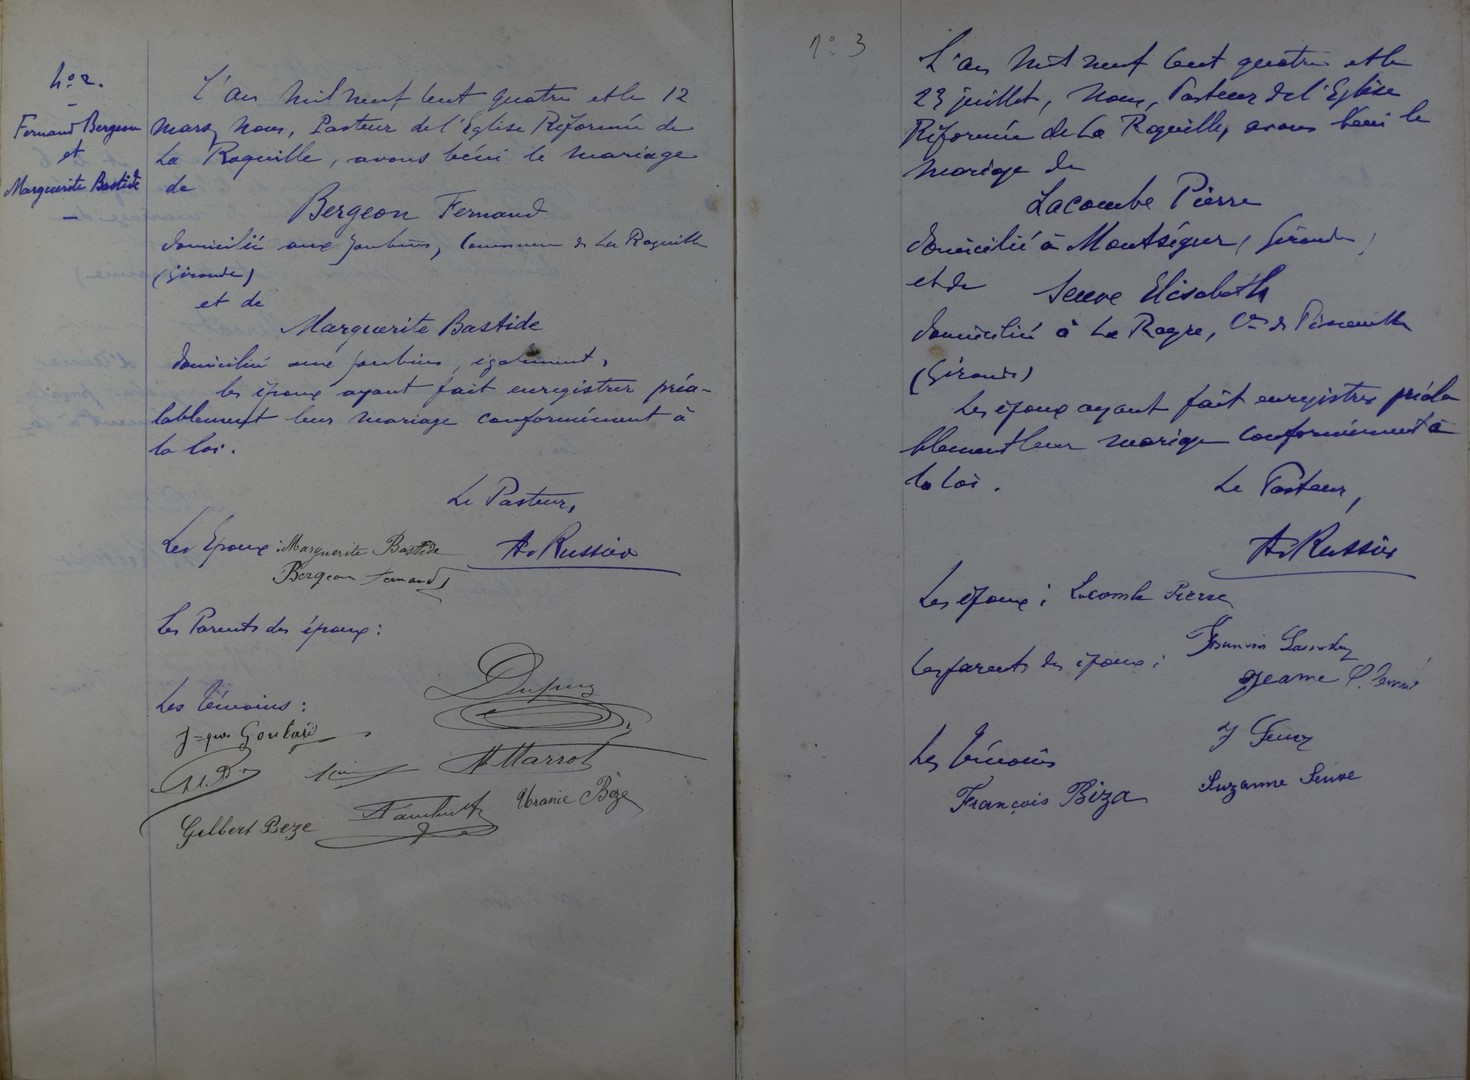 N° 2.
Fernand Bergeon
et
Marguerite Bastide
L'an mil neuf cent quatre et le 12
mars, Nous, Pasteur de l'Eglise Réformée de
La Roquille, avons béni le mariage
de
Bergeon Fernand
domicilié aux Joubins, Commune de La Roquille
(Gironde)
et de
Marguerite Bastide
domiciliée aux Joubins, également,
les époux ayant fait enregistrer préa-
lablement leur mariage conformément à
la loi.
Le Pasteur,
Les Epoux : Marguerite Bastide
A. Russier
Bergeon Fernand
Les Parents des époux :
Dupuy
Les Témoins :
J=ques Goulard
H Marrot
Uranie Bèze
Gilbert Beze
N° 3
L'an mil neuf cent quatre et le
23 juillet, Nous, Pasteur de l'Eglise
Réformée de La Roquille, avons béni le
mariage de
Lacombe Pierre
domicilié à Montségur (Gironde)
et de
Seuve Elisabeth
domiciliée à La Rayre, Cne de
(Gironde)
Les époux ayant fait enregistrer préala
blement leur mariage conformément à
la loi.
Le Pasteur,
A. Russier
Les époux : Lacombe Pierre
Les parents des époux :
Jeanne
Les Témoins
François Biza
Suzanne Seuve